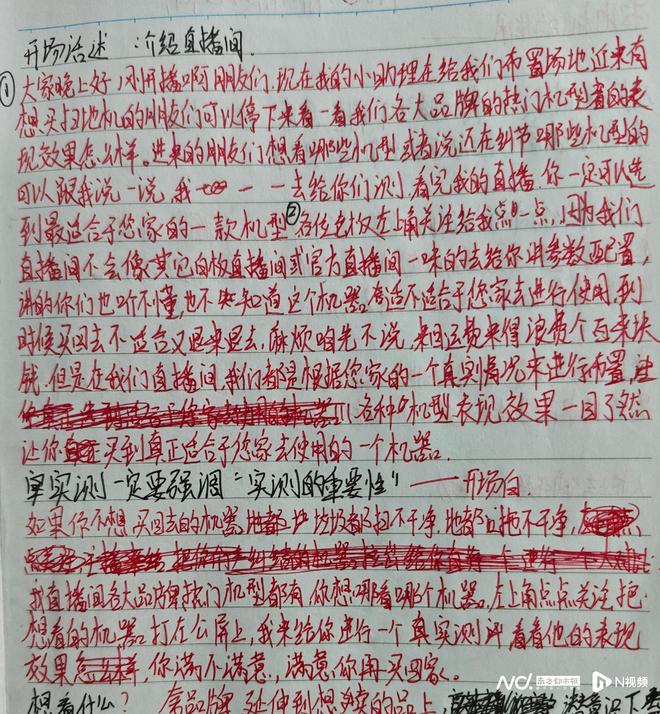 开场话述:介绍直播间.
①大家晚上好,刚开播啊朋友们,现在我的小助理在给我们布置场地近来有
想买扫地机的朋友们可以停下来看一看我们各大品牌的热门机型者的表
现效果怎么样。进来的朋友们想看哪些机型或者说还在纠节哪些机型的
可以跟我说一说,我一一去给你们测,看完我的直播,你一定可以选
到最适合于您家的一款机型②各位老板左上角关注给我点一点,因为我们
直播间不会像其它白板直播间或官方直播间一味的去给你讲参数配置,
讲的你们也听不懂也不知道这个机器适不适合于您家去进行使用,到
时候买回去不适合又退来退去,麻烦咱先不说,来回运费来得浪费个百来块
钱,但是在我们直播间,我们都是根据您家的一个真实情况来进行布置,
各种机型表现效果一目了然
让你买到真正适合于您家去使用的一个机器.
实测一定要强调“实测的重要性”——开场白.
如果你不想买回去的机器地都垃圾都扫不干净,地都拖不干净,
我直播间各大品牌热门机型都有,你想哪看哪个机器,左上角点点关注把
想看的机器打在公屏上,我来给你进行一个真实测评,看看他的表现
效果,你满不满意,满意你再买回家.
想看什么? 品牌 延伸到想买的品上,
N 南方都市报 N视频